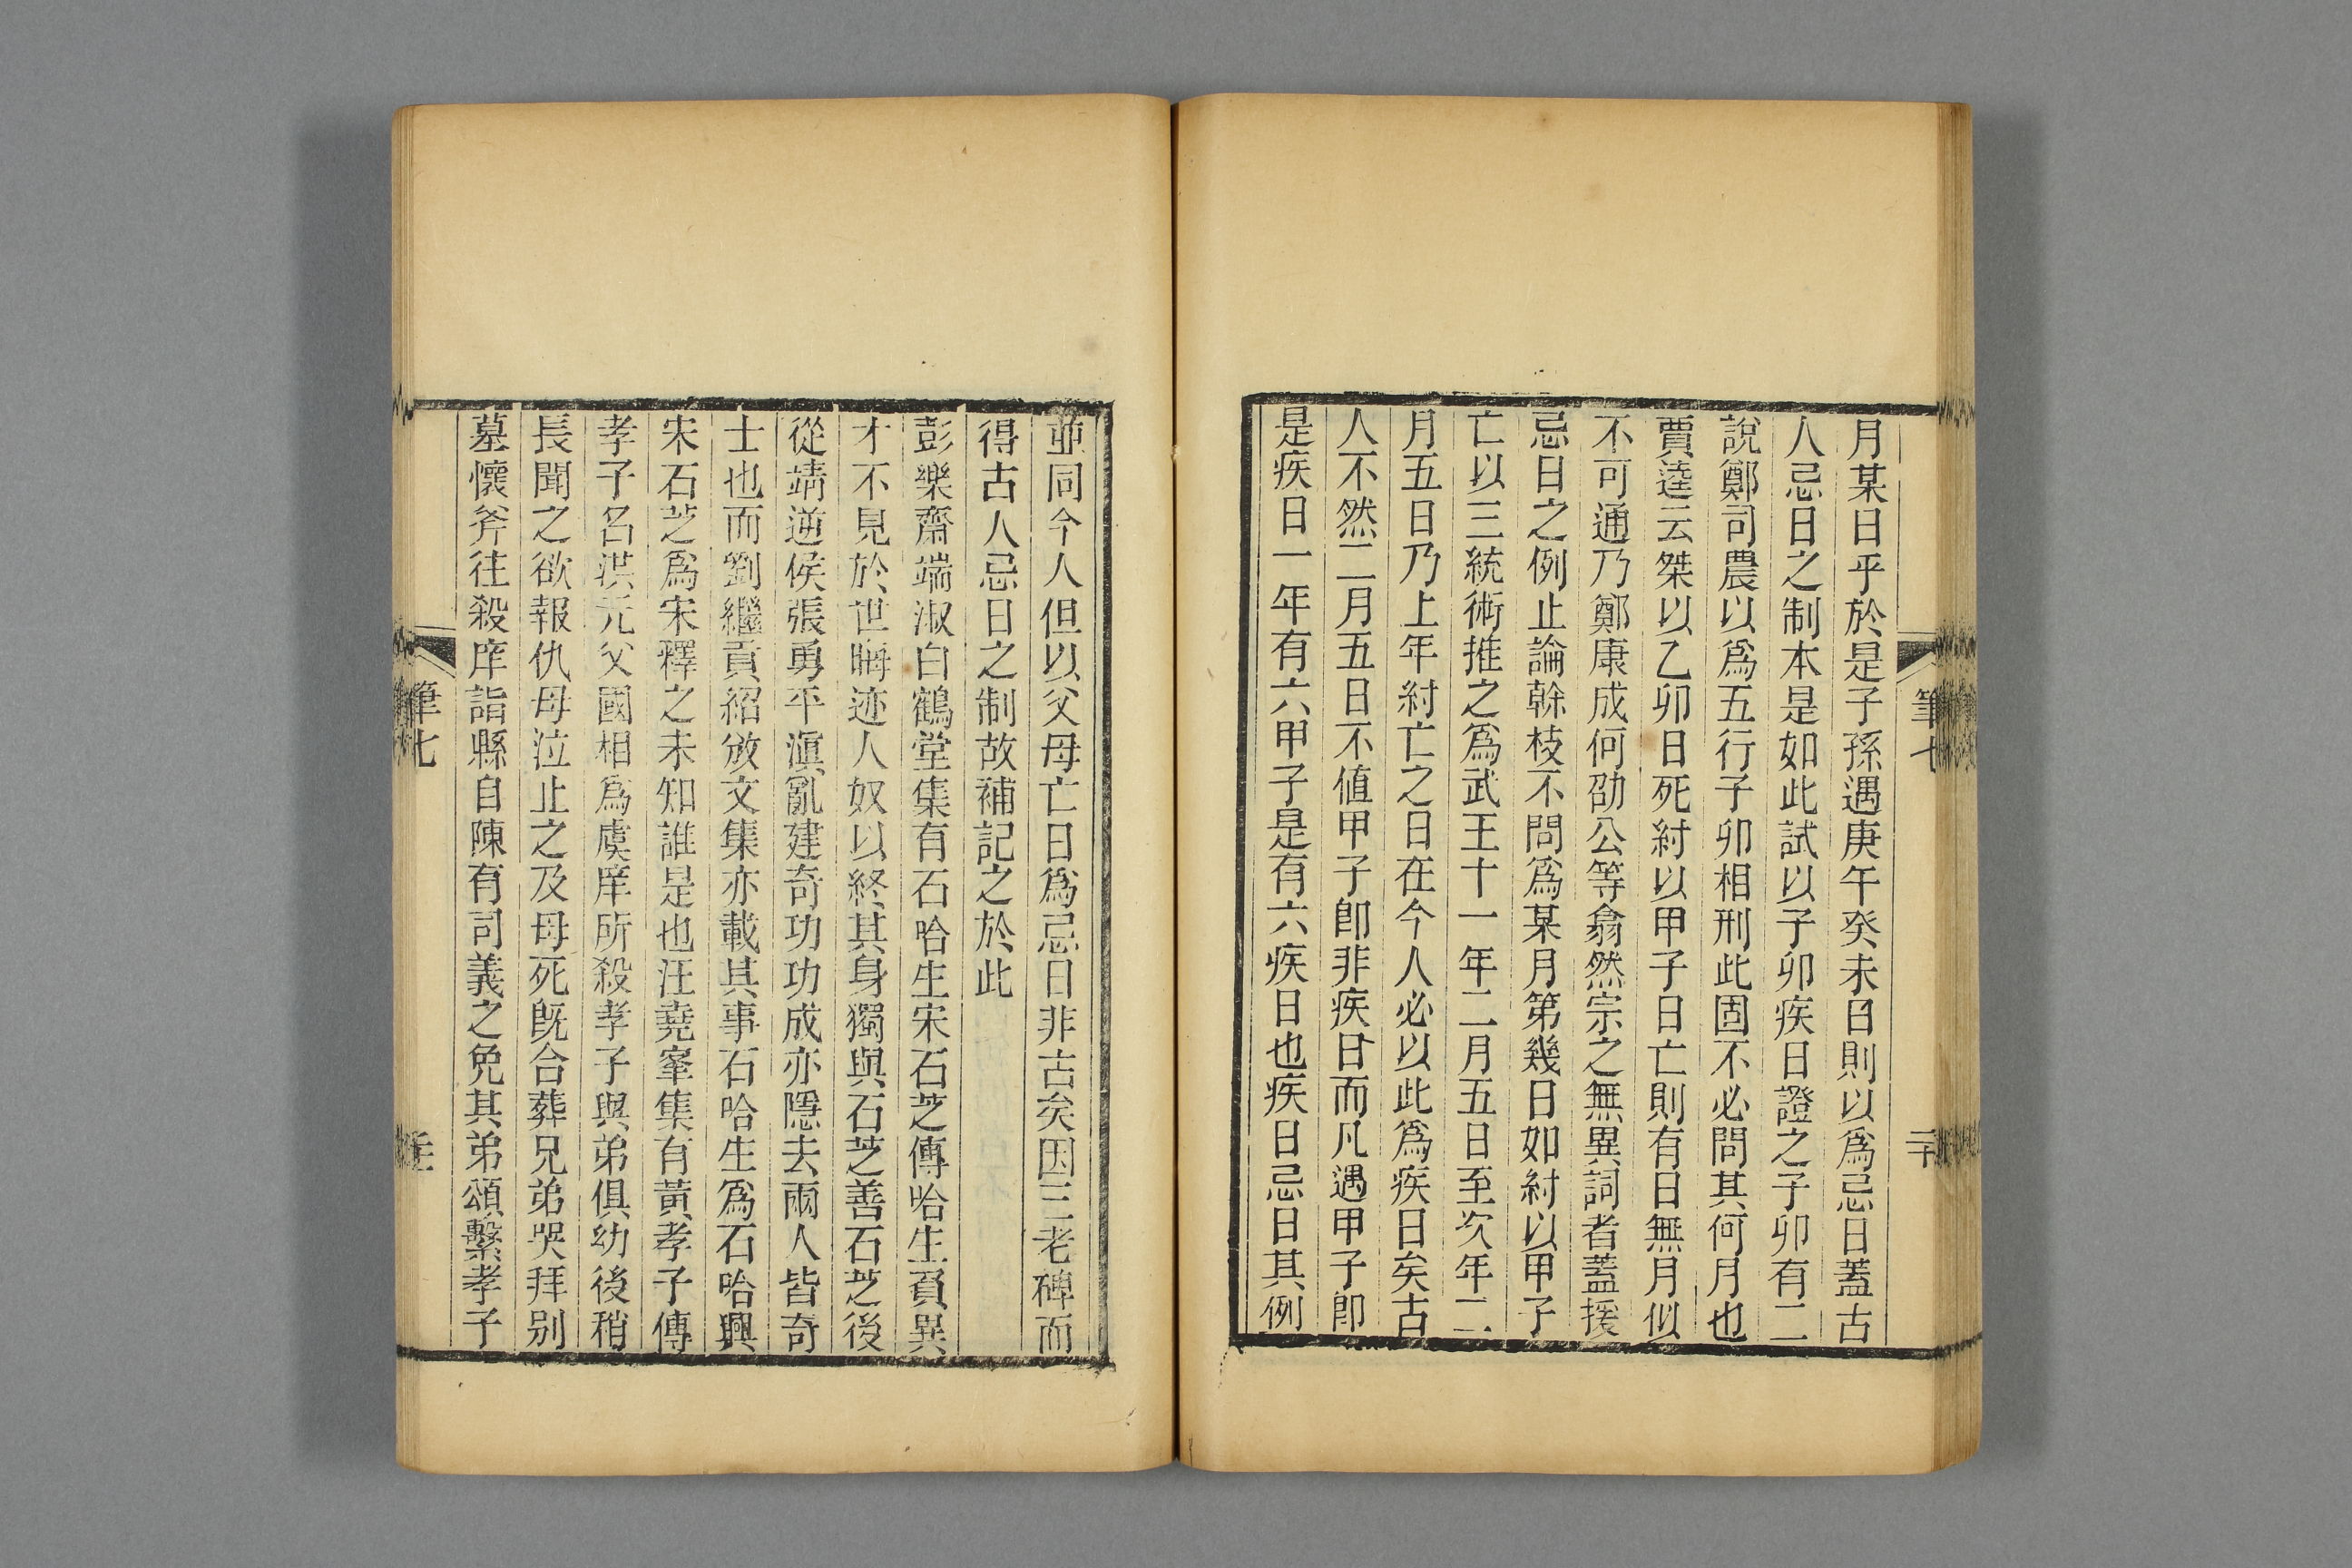 月某日乎於是子孫遇庚午癸未日則以爲忌日蓋古
人忌日之制本是如此試以子卯疾日證之子卯有二
說鄭司農以爲五行子卯相刑此固不必問其何月也
賈逵云桀以乙卯日死紂以甲子日亡則有日無月似
不可通乃鄭康成何劭公等翕然宗之無異詞者蓋援
忌日之例止論榦枝不問爲某月第幾日如紂以甲子
亡以三統術推之爲武王十一年二月五日至次年二
月五日乃上年紂亡之日在今人必以此爲疾日矣古
人不然二月五日不值甲子卽非疾日而凡遇甲子卽
是疾日一年有六甲子是有六疾日也疾日忌日其例
筆七
二十
並同今人但以父母亡日爲忌日非古矣因三老碑而
得古人忌日之制故補記之於此
彭樂齋端淑白鶴堂集有石哈生宋石芝傳哈生負異
才不見於世晦迹人奴以終其身獨與石芝善石芝後
從靖逆侯張勇平滇亂建奇功功成亦隱去兩人皆奇
士也而劉繼貢紹攽文集亦載其事石哈生爲石哈興
宋石芝爲宋釋之未知誰是也汪堯峯集有黃孝子傳
孝子名洪元父國相爲虞庠所殺孝子與弟俱幼後稍
長聞之欲報仇母泣止之及母死旣合葬兄弟哭拜別
墓懷斧往殺庠詣縣自陳有司義之免其弟頌繫孝子
筆七